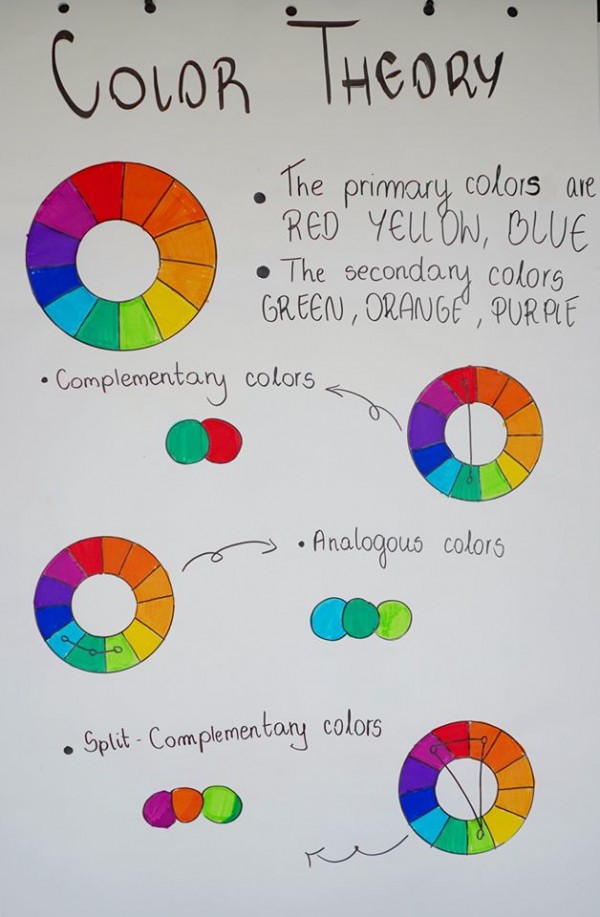 COLOR THEORY
• The primary colors are
RED YELLOW, BLUE
• The secondary colors
GREEN, ORANGE, PURPLE
• Complementary colors
• Analogous colors
• Split-Complementary colors